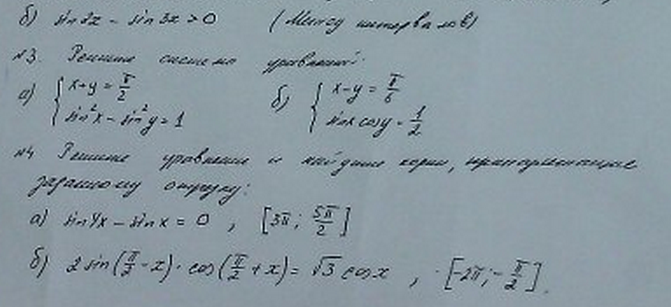 б) sin2x - sin3x > 0 (Метод интервалов)
№3. Решите систему уравнений:
а) { x+y = π/2
sin²x - sin²y = 1
б) { x-y = π/6
sinx cosy = 1/2
№4 Решите уравнение и найдите корни, принадлежащие
заданному отрезку:
а) sin4x - sinx = 0 , [3π; 5π/2]
б) 2 sin(π/2 - x) · cos(π/2 + x) = √3 cosx , [-2π; -π/2]